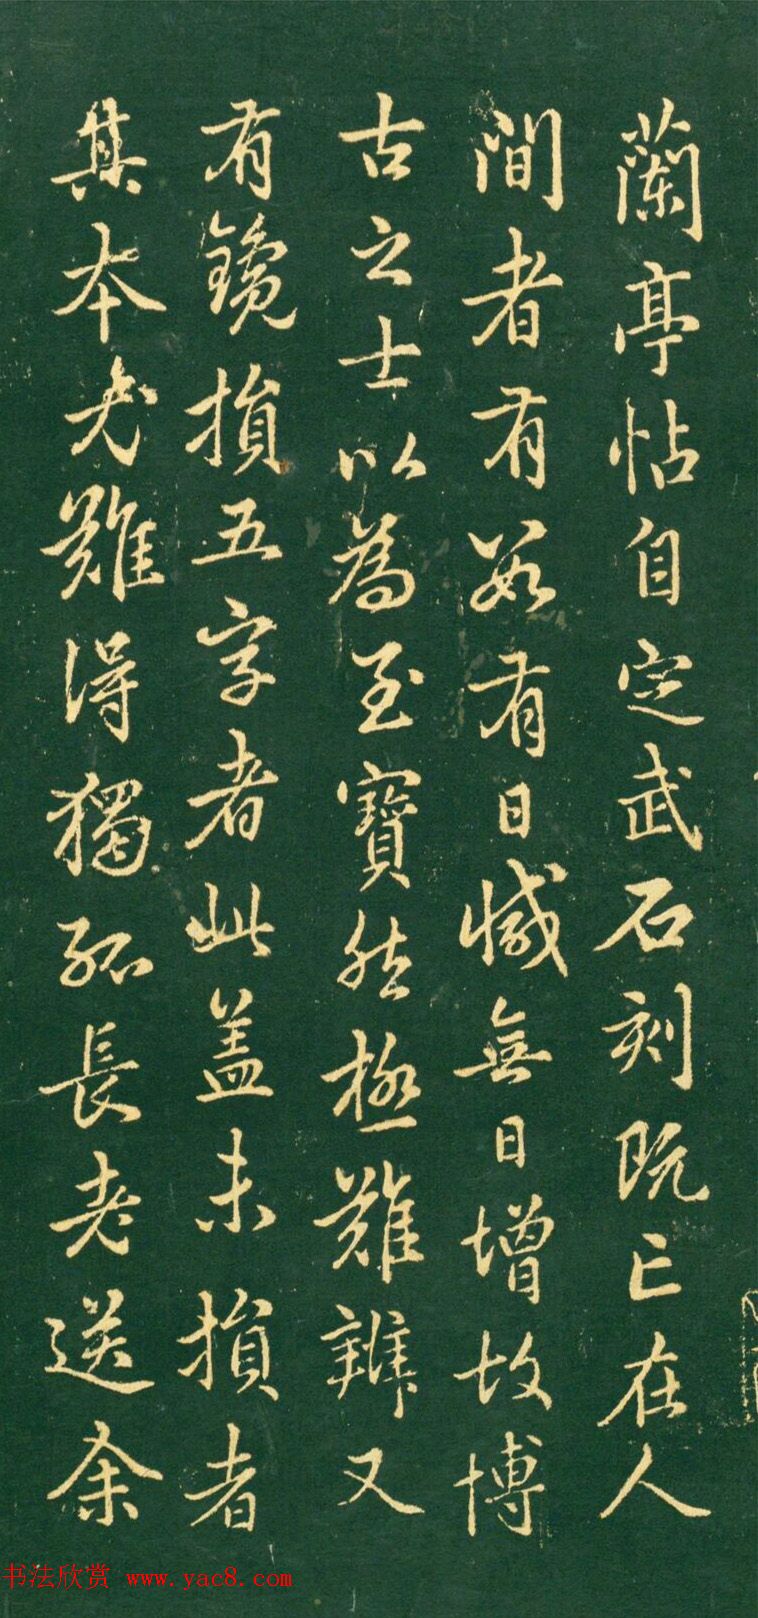 蘭亭帖自定武石刻既亡在人
間者有數有日減無日增故博
古之士以為至寶然極難辨又
有鑱損五字者此蓋未損者
其本尤難得獨孤長老送余
书法欣赏 www.yac8.com